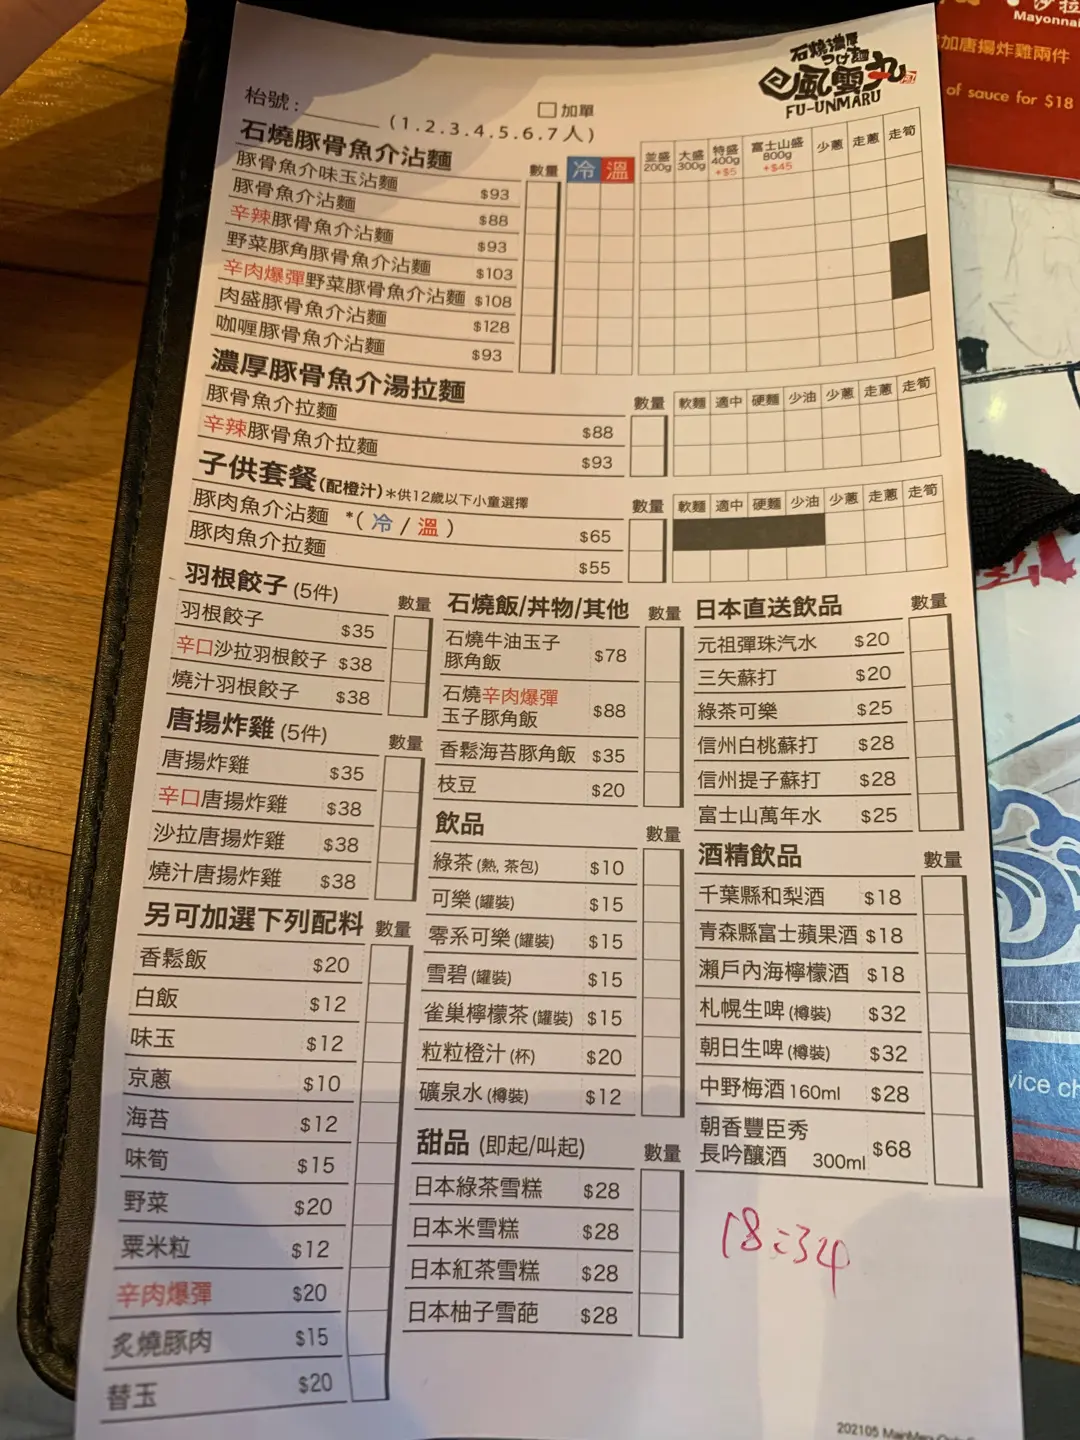 石燒濃厚
つけ麵
風雲丸
FU-UNMARU
枱號：
加單
(1.2.3.4.5.6.7人)
石燒豚骨魚介沾麵
數量 冷 溫 並盛200g 大盛300g 特盛400g +$5 富士山盛800g +$45 少蔥 走蔥 走筍
豚骨魚介味玉沾麵 $93
豚骨魚介沾麵 $88
辛辣豚骨魚介沾麵 $93
野菜豚角豚骨魚介沾麵 $103
辛肉爆彈野菜豚骨魚介沾麵 $108
肉盛豚骨魚介沾麵 $128
咖喱豚骨魚介沾麵 $93
濃厚豚骨魚介湯拉麵
數量 軟麵 適中 硬麵 少油 少蔥 走蔥 走筍
豚骨魚介拉麵 $88
辛辣豚骨魚介拉麵 $93
子供套餐(配橙汁)*供12歲以下小童選擇
數量 軟麵 適中 硬麵 少油 少蔥 走蔥 走筍
豚肉魚介沾麵 *(冷/溫) $65
豚肉魚介拉麵 $55
羽根餃子 (5件) 數量
羽根餃子 $35
辛口沙拉羽根餃子 $38
燒汁羽根餃子 $38
唐揚炸雞 (5件) 數量
唐揚炸雞 $35
辛口唐揚炸雞 $38
沙拉唐揚炸雞 $38
燒汁唐揚炸雞 $38
另可加選下列配料 數量
香鬆飯 $20
白飯 $12
味玉 $12
京蔥 $10
海苔 $12
味筍 $15
野菜 $20
粟米粒 $12
辛肉爆彈 $20
炙燒豚肉 $15
替玉 $20
石燒飯/丼物/其他 數量
石燒牛油玉子
豚角飯 $78
石燒辛肉爆彈
玉子豚角飯 $88
香鬆海苔豚角飯 $35
枝豆 $20
飲品 數量
綠茶 (熱, 茶包) $10
可樂 (罐裝) $15
零系可樂 (罐裝) $15
雪碧 (罐裝) $15
雀巢檸檬茶 (罐裝) $15
粒粒橙汁 (杯) $20
礦泉水 (樽裝) $12
甜品 (即起/叫起) 數量
日本綠茶雪糕 $28
日本米雪糕 $28
日本紅茶雪糕 $28
日本柚子雪葩 $28
日本直送飲品 數量
元祖彈珠汽水 $20
三矢蘇打 $20
綠茶可樂 $25
信州白桃蘇打 $28
信州提子蘇打 $28
富士山萬年水 $25
酒精飲品 數量
千葉縣和梨酒 $18
青森縣富士蘋果酒 $18
瀨戶內海檸檬酒 $18
札幌生啤 (樽裝) $32
朝日生啤 (樽裝) $32
中野梅酒 160ml $28
朝香豐臣秀
長吟釀酒 300ml $68
18:34
202105
加唐揚炸雞兩件
of sauce for $18